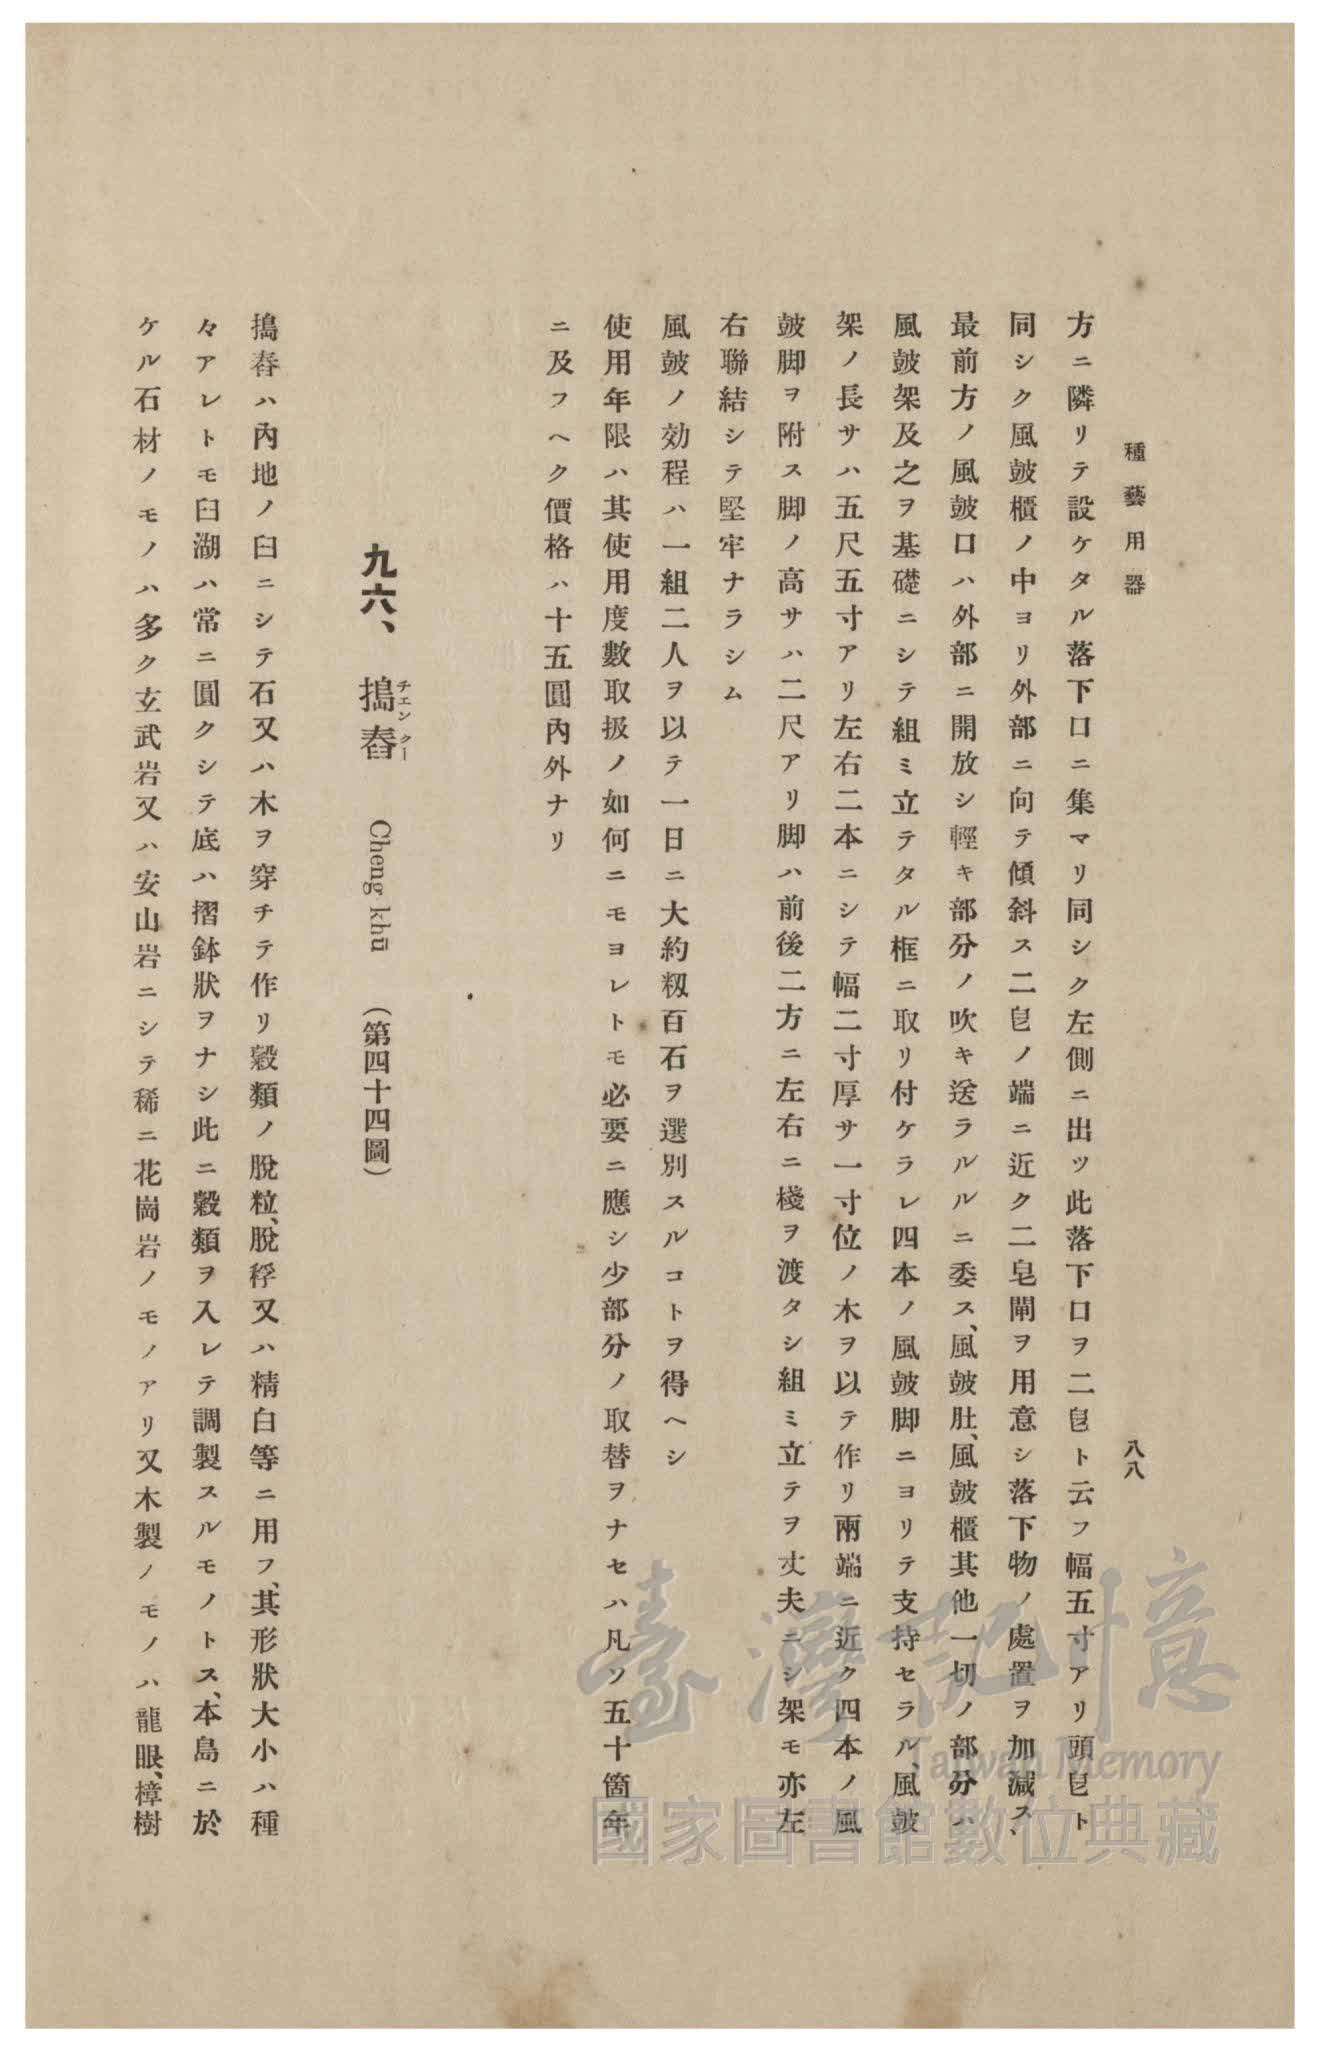 種藝用器
八八
方ニ隣リテ設ケタル落下口ニ集マリ同シク左側ニ出ツ此落下口ヲ二皀ト云フ幅五寸アリ頭皀ト
同シク風皷櫃ノ中ヨリ外部ニ向テ傾斜ス二皀ノ端ニ近ク二皂閘ヲ用意シ落下物ノ處置ヲ加減ス、
最前方ノ風皷口ハ外部ニ開放シ輕キ部分ノ吹キ送ラルルニ委ス、風皷肚、風皷櫃其他一切ノ部分ハ
風皷架及之ヲ基礎ニシテ組ミ立テタル框ニ取リ付ケラレ四本ノ風皷脚ニヨリテ支持セラル、風皷
架ノ長サハ五尺五寸アリ左右二本ニシテ幅二寸厚サ一寸位ノ木ヲ以テ作リ兩端ニ近ク四本ノ風
皷脚ヲ附ス脚ノ高サハ二尺アリ脚ハ前後二方ニ左右ニ棧ヲ渡タシ組ミ立テヲ丈夫ニシ架モ亦左
右聯結シテ堅牢ナラシム
風皷ノ効程ハ一組二人ヲ以テ一日ニ大約籾百石ヲ選別スルコトヲ得ヘシ
使用年限ハ其使用度數取扱ノ如何ニモヨレトモ必要ニ應シ少部分ノ取替ヲナセハ凡ソ五十箇年
ニ及フヘク價格ハ十五圓內外ナリ
九六、搗舂 チエンクー Cheng khū （第四十四圖）
搗舂ハ內地ノ臼ニシテ石又ハ木ヲ穿チテ作リ穀類ノ脫粒、脫稃又ハ精白等ニ用フ、其形狀大小ハ種
々アレトモ臼湖ハ常ニ圓クシテ底ハ摺鉢狀ヲナシ此ニ穀類ヲ入レテ調製スルモノトス、本島ニ於
ケル石材ノモノハ多ク玄武岩又ハ安山岩ニシテ稀ニ花崗岩ノモノアリ又木製ノモノハ龍眼、樟樹
臺灣記憶
Taiwan Memory
國家圖書館數位典藏